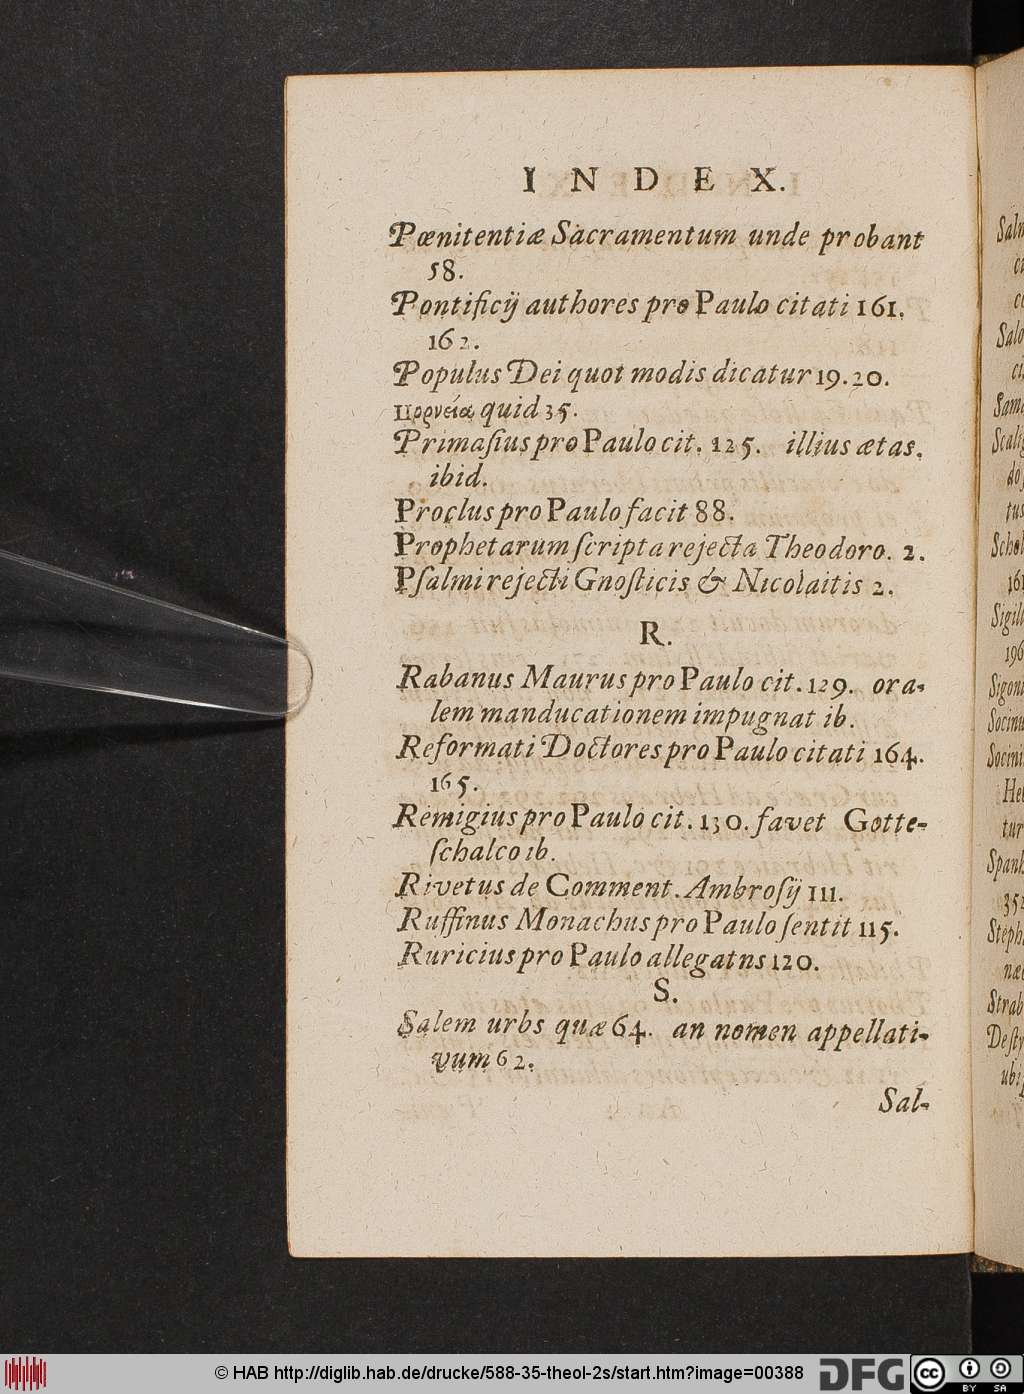 INDEX.
Pœnitentiæ Sacramentum unde probant
58.
Pontificij authores pro Paulo citati 161.
162.
Populus Dei quot modis dicatur 19. 20.
πορνεία quid 35.
Primaſius pro Paulo cit. 125. illius ætas.
ibid.
Proclus pro Paulo facit 88.
Prophetarum ſcripta rejecta Theodoro. 2.
Pſalmi rejecti Gnoſticis & Nicolaitis 2.
R.
Rabanus Maurus pro Paulo cit. 129. ora-
lem manducationem impugnat ib.
Reformati Doctores pro Paulo citati 164.
165.
Remigius pro Paulo cit. 130. favet Gotte-
ſchalco ib.
Rivetus de Comment. Ambroſij 111.
Ruffinus Monachus pro Paulo ſentit 115.
Ruricius pro Paulo allegatns 120.
S.
Salem urbs quæ 64. an nomen appellati-
vum 62.
Sal-
© HAB http://diglib.hab.de/drucke/588-35-theol-2s/start.htm?image=00388
DFG
cc
BY SA